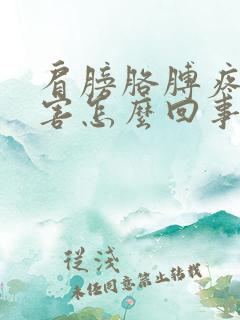 肩膀胳膊疼
害怎麼回事
從淺
未經同意禁止轉載